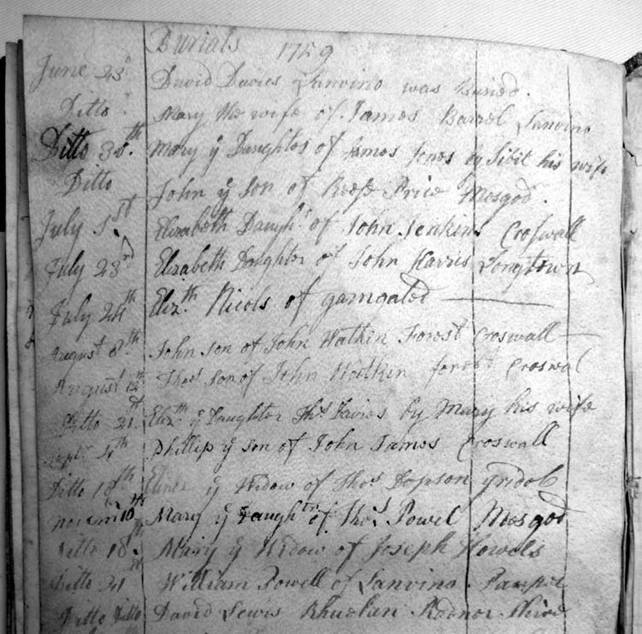 Burials 1759
June 23d David Davies Lanvino was buried.
Ditto Mary the wife of James Barrel Lanvino
Ditto 30th Mary ye Daughter of James Jones by Sibil his wife
Ditto John ye son of Reese Price Mesgod.
July 1st Elizabeth Daughr of John Jenkins Croswall
July 23d Elizabeth Daughter of John Harris Longtown
July 24th Elizth Nicols of
August 8th John son of John Watkin Forest Croswall
August Thos son of John Watkin forest Croswal
Ditto 21 Elizth ye Daughter Thos Davies by Mary his wife
Sept 4th Phillip ye son of John James Croswall
Ditto 18th ye Widow of Thos
10th Mary ye Daughtr of Thos Powel Mesgod
Ditto 18 Mary ye Widow of Joseph Howels
Ditto 21 William Powell of Lanvino
Ditto Ditto David Lewis Radnor Shire